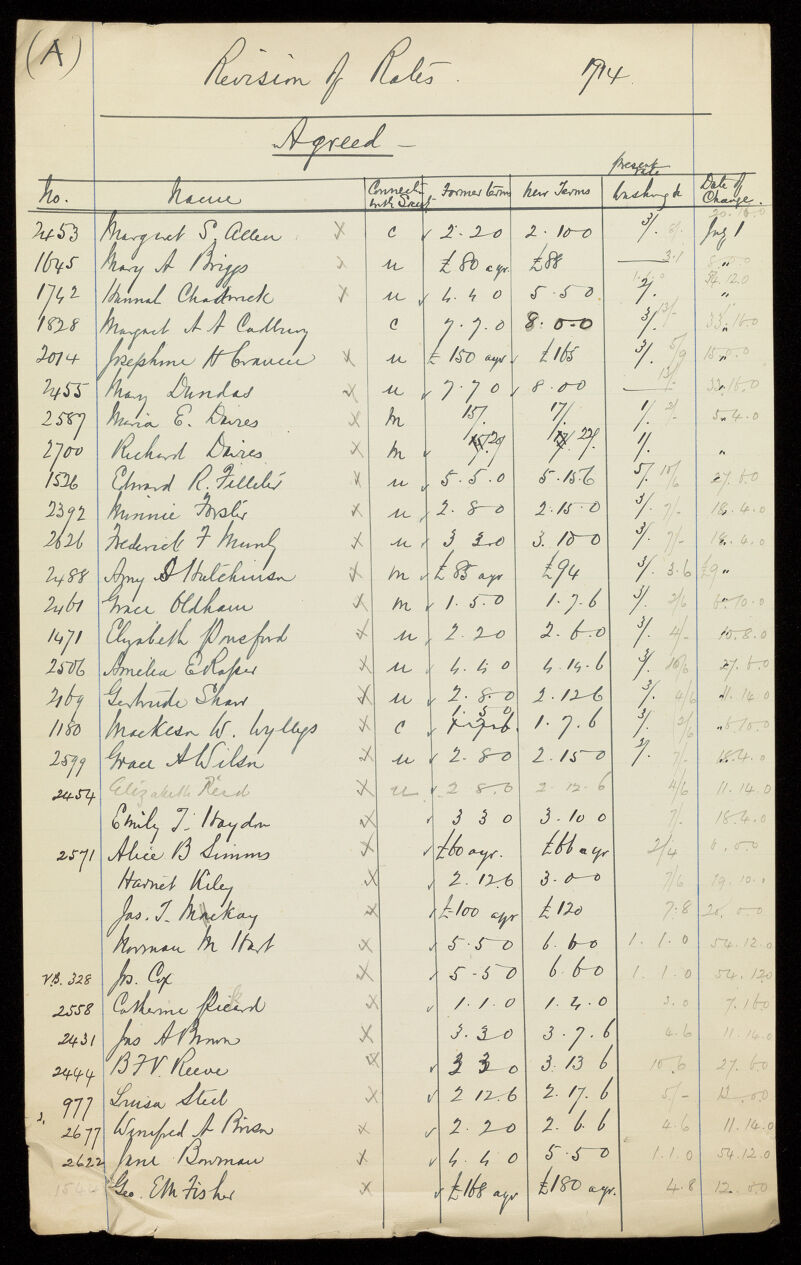 (A)
Revision of Rates. 1914.
Agreed —
present rate
No. Name Connect. with Former terms New Terms Washing &c Date of Change.
2453 Margaret S. Allen x c ✓ 2.2.0 2.10.0 3/. July 1
1645 Mary A Briggs x u £80 a yr. £88 "
1742 Hannah Chadwick x u ✓ 4.4.0 5.5.0 2/. 54.12.0 "
1828 Margaret A A Cadbury c 7.7.0 8.0.0 3/. "
2014 Josephine H Craven x u £150 a yr ✓ £165 3/. "
2455 Mary Dundas x u ✓ 7.7.0 ✓ 8.0.0
2587 Maria E. Davies x m 15/. 17/. 1/. 2/- 5.4.0
2700 Richard Davies x m ✓ 1/. "
1526 Edward R. Filliter x u ✓ 5.5.0 5.15.6 5/. 10/6 27.6.0
2392 Minnie Forster x u ✓ 2.8.0 2.15.0 3/. 7/- 18.4.0
2626 Frederick F Munly x u ✓ 3.3.0 3.10.0 3/. 7/- 18.4.0
2488 Amy S Hutchinson x m ✓ £85 a yr £94 3/. 3.6 £9 "
2461 Grace Oldham x m ✓ 1.5.0 1.7.6 3/. 2/6 6.10.0
1471 Elizabeth Ponsford x u ✓ 2.2.0 2.6.0 3/. 4/- 10.8.0
2506 Amelia E Raper x u ✓ 4.4.0 4.14.6 3/. 10/6 27.6.0
2169 Gertrude Shaw x u ✓ 2.8.0 2.12.6 3/. 4/6 11.14.0
1180 Mackeson W. Wylleys x c ✓ 1.5.0 1.7.6 3/. 2/6 6.10.0
2599 Grace A Wilson x u ✓ 2.8.0 2.15.0 2/. 7/- 18.4.0
2454 Elizabeth Reid x u ✓ 2.8.0 2.12.6 4/6 11.14.0
Emily T. Haydon x ✓ 3.3.0 3.10.0 7/- 18.4.0
2571 Alice B Simms x ✓ £60 a yr. £66 a yr 2/4
Harriet Kiley x ✓ 2.12.6 3.0.0 7/6 19.10.0
Jas. T. Mackay x ✓ £100 a yr £120 7.8 20.0.0
Norman M Hart x ✓ 5.5.0 6.6.0 1.1.0 54.12.0
V.B. 328 Js. Cox x ✓ 5.5.0 6.6.0 1.1.0 54.12.0
2558 Catherine Picard x ✓ 1.1.0 1.4.0 3.0 7.16.0
2431 Jas A Brown x 3.3.0 3.7.6 4.6 11.14.0
2444 B F V. Reeve x ✓ 3.3.0 3.13.6 10.6 27.6.0
977 Louisa Steel x ✓ 2.12.6 2.17.6 5/- 13.0.0
2677 Winifred A x ✓ 2.2.0 2.6.6 4.6 11.14.0
2622 Jane Bowman x ✓ 4.4.0 5.5.0 1.1.0 54.12.0
Geo. E M Fisher x ✓ £168 a yr £180 a yr. 4.8 12.0.0